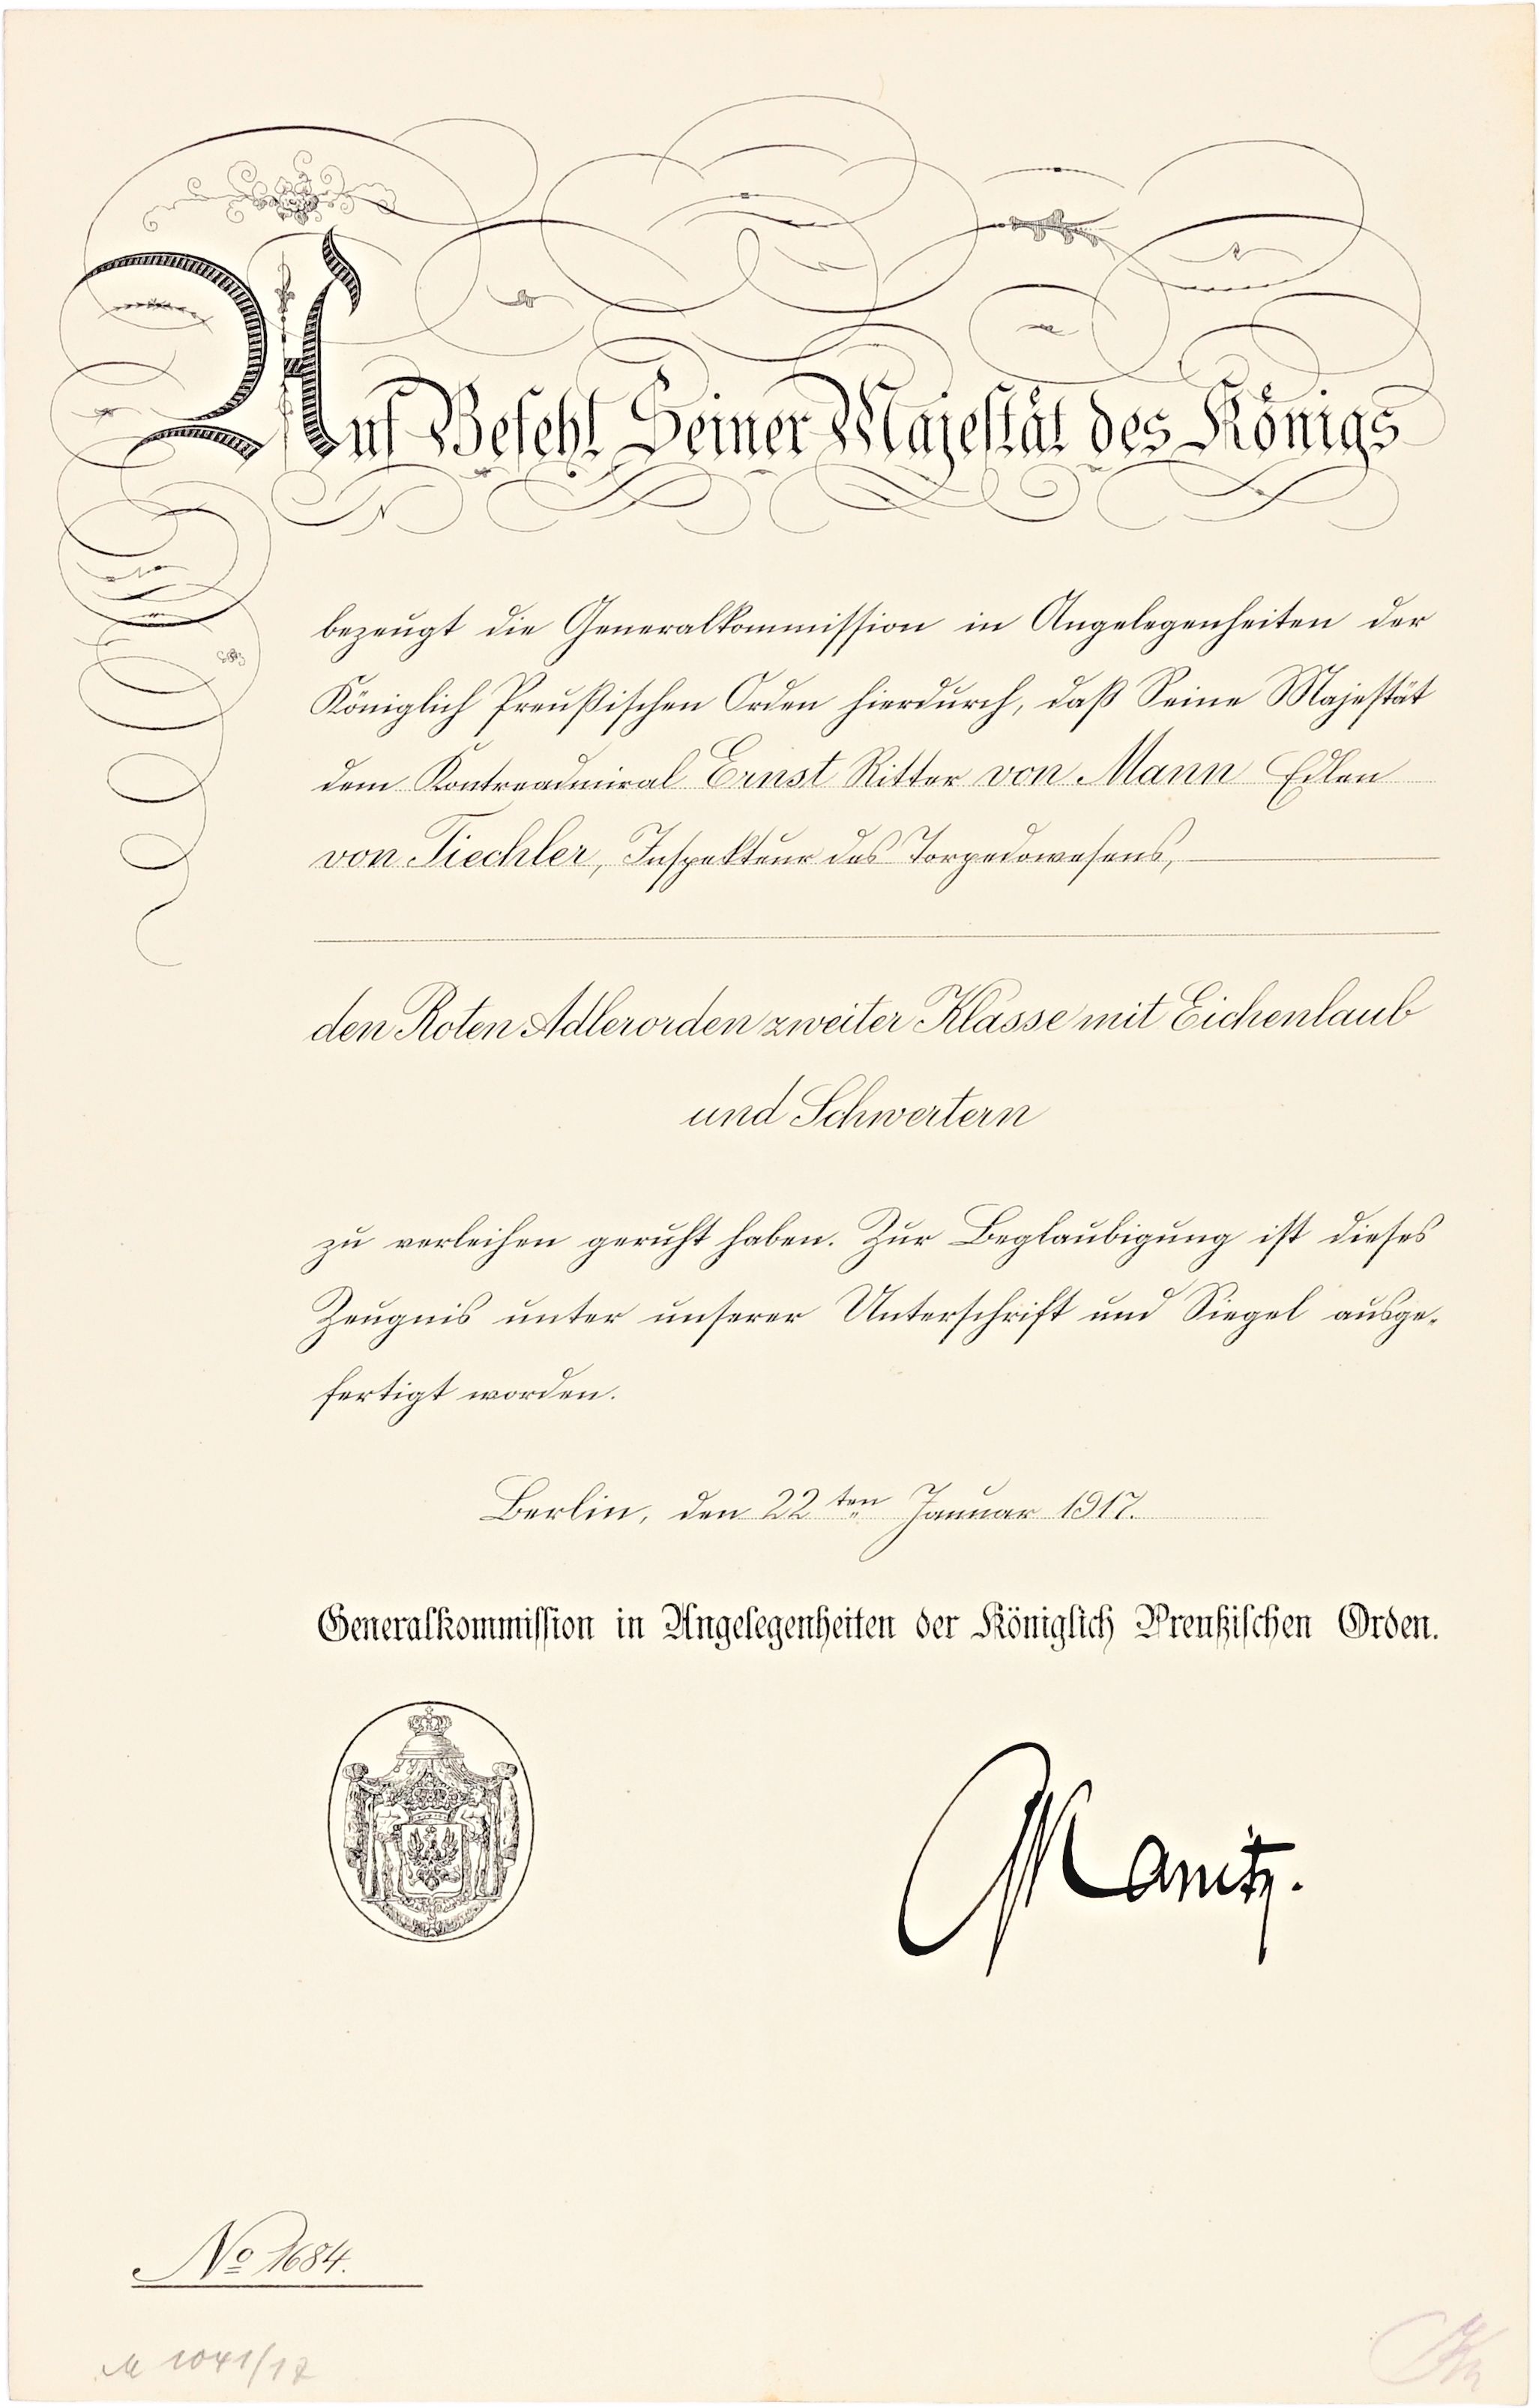 Auf Befehl Seiner Majestät des Königs
bezeugt die Generalkommission in Angelegenheiten der
Königlich Preußischen Orden hierdurch, daß Seine Majestät
dem Kontreadmiral Ernst Ritter von Mann Edlen
von Tiechler, Inspekteur des Torpedowesens,
den Roten Adlerorden zweiter Klasse mit Eichenlaub
und Schwertern
zu verleihen geruht haben. Zur Beglaubigung ist dieses
Zeugnis unter unserer Unterschrift und Siegel ausge-
fertigt worden.
Berlin, den 22ten Januar 1917.
Generalkommission in Angelegenheiten der Königlich Preußischen Orden.
Kanitz.
No 1684.
M 1041/17